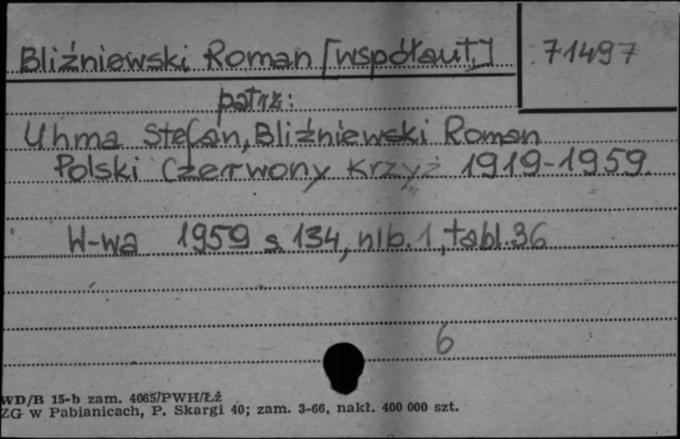 Bliźniewski Roman [współaut.] 71497
patrz:
Uhma Stefan, Bliźniewski Roman
Polski Czerwony Krzyż 1919-1959.
W-wa 1959 s 134, nlb. 1, tabl. 36
6
WD/B 15-b zam. 4065/PWH/Łź
ZG w Pabianicach, P. Skargi 40; zam. 3-66, nakł. 400 000 szt.